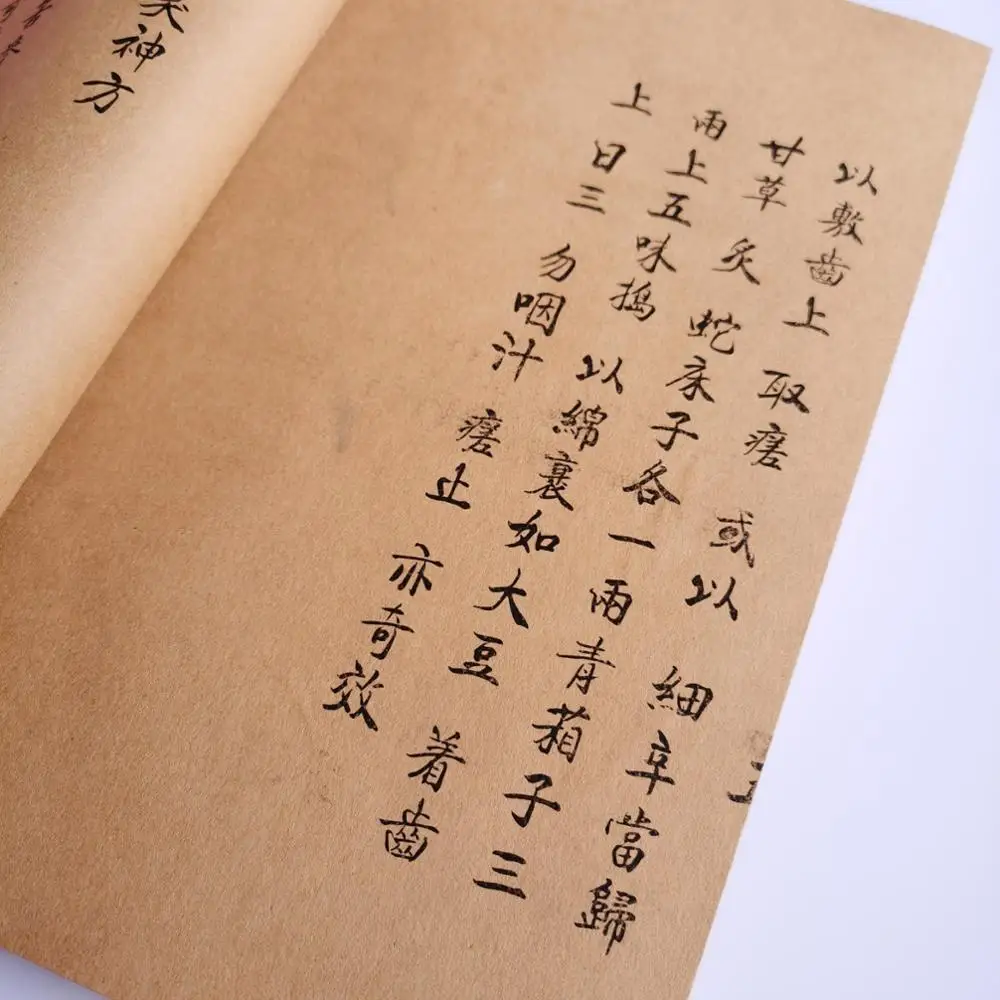 以敷齒上 取瘥 或以 細辛當歸
甘草 炙 蛇床子各一兩青葙子三
兩上五味搗 以綿裹如大豆 着齒
上 日三 勿咽汁 瘥止 亦奇效
神方